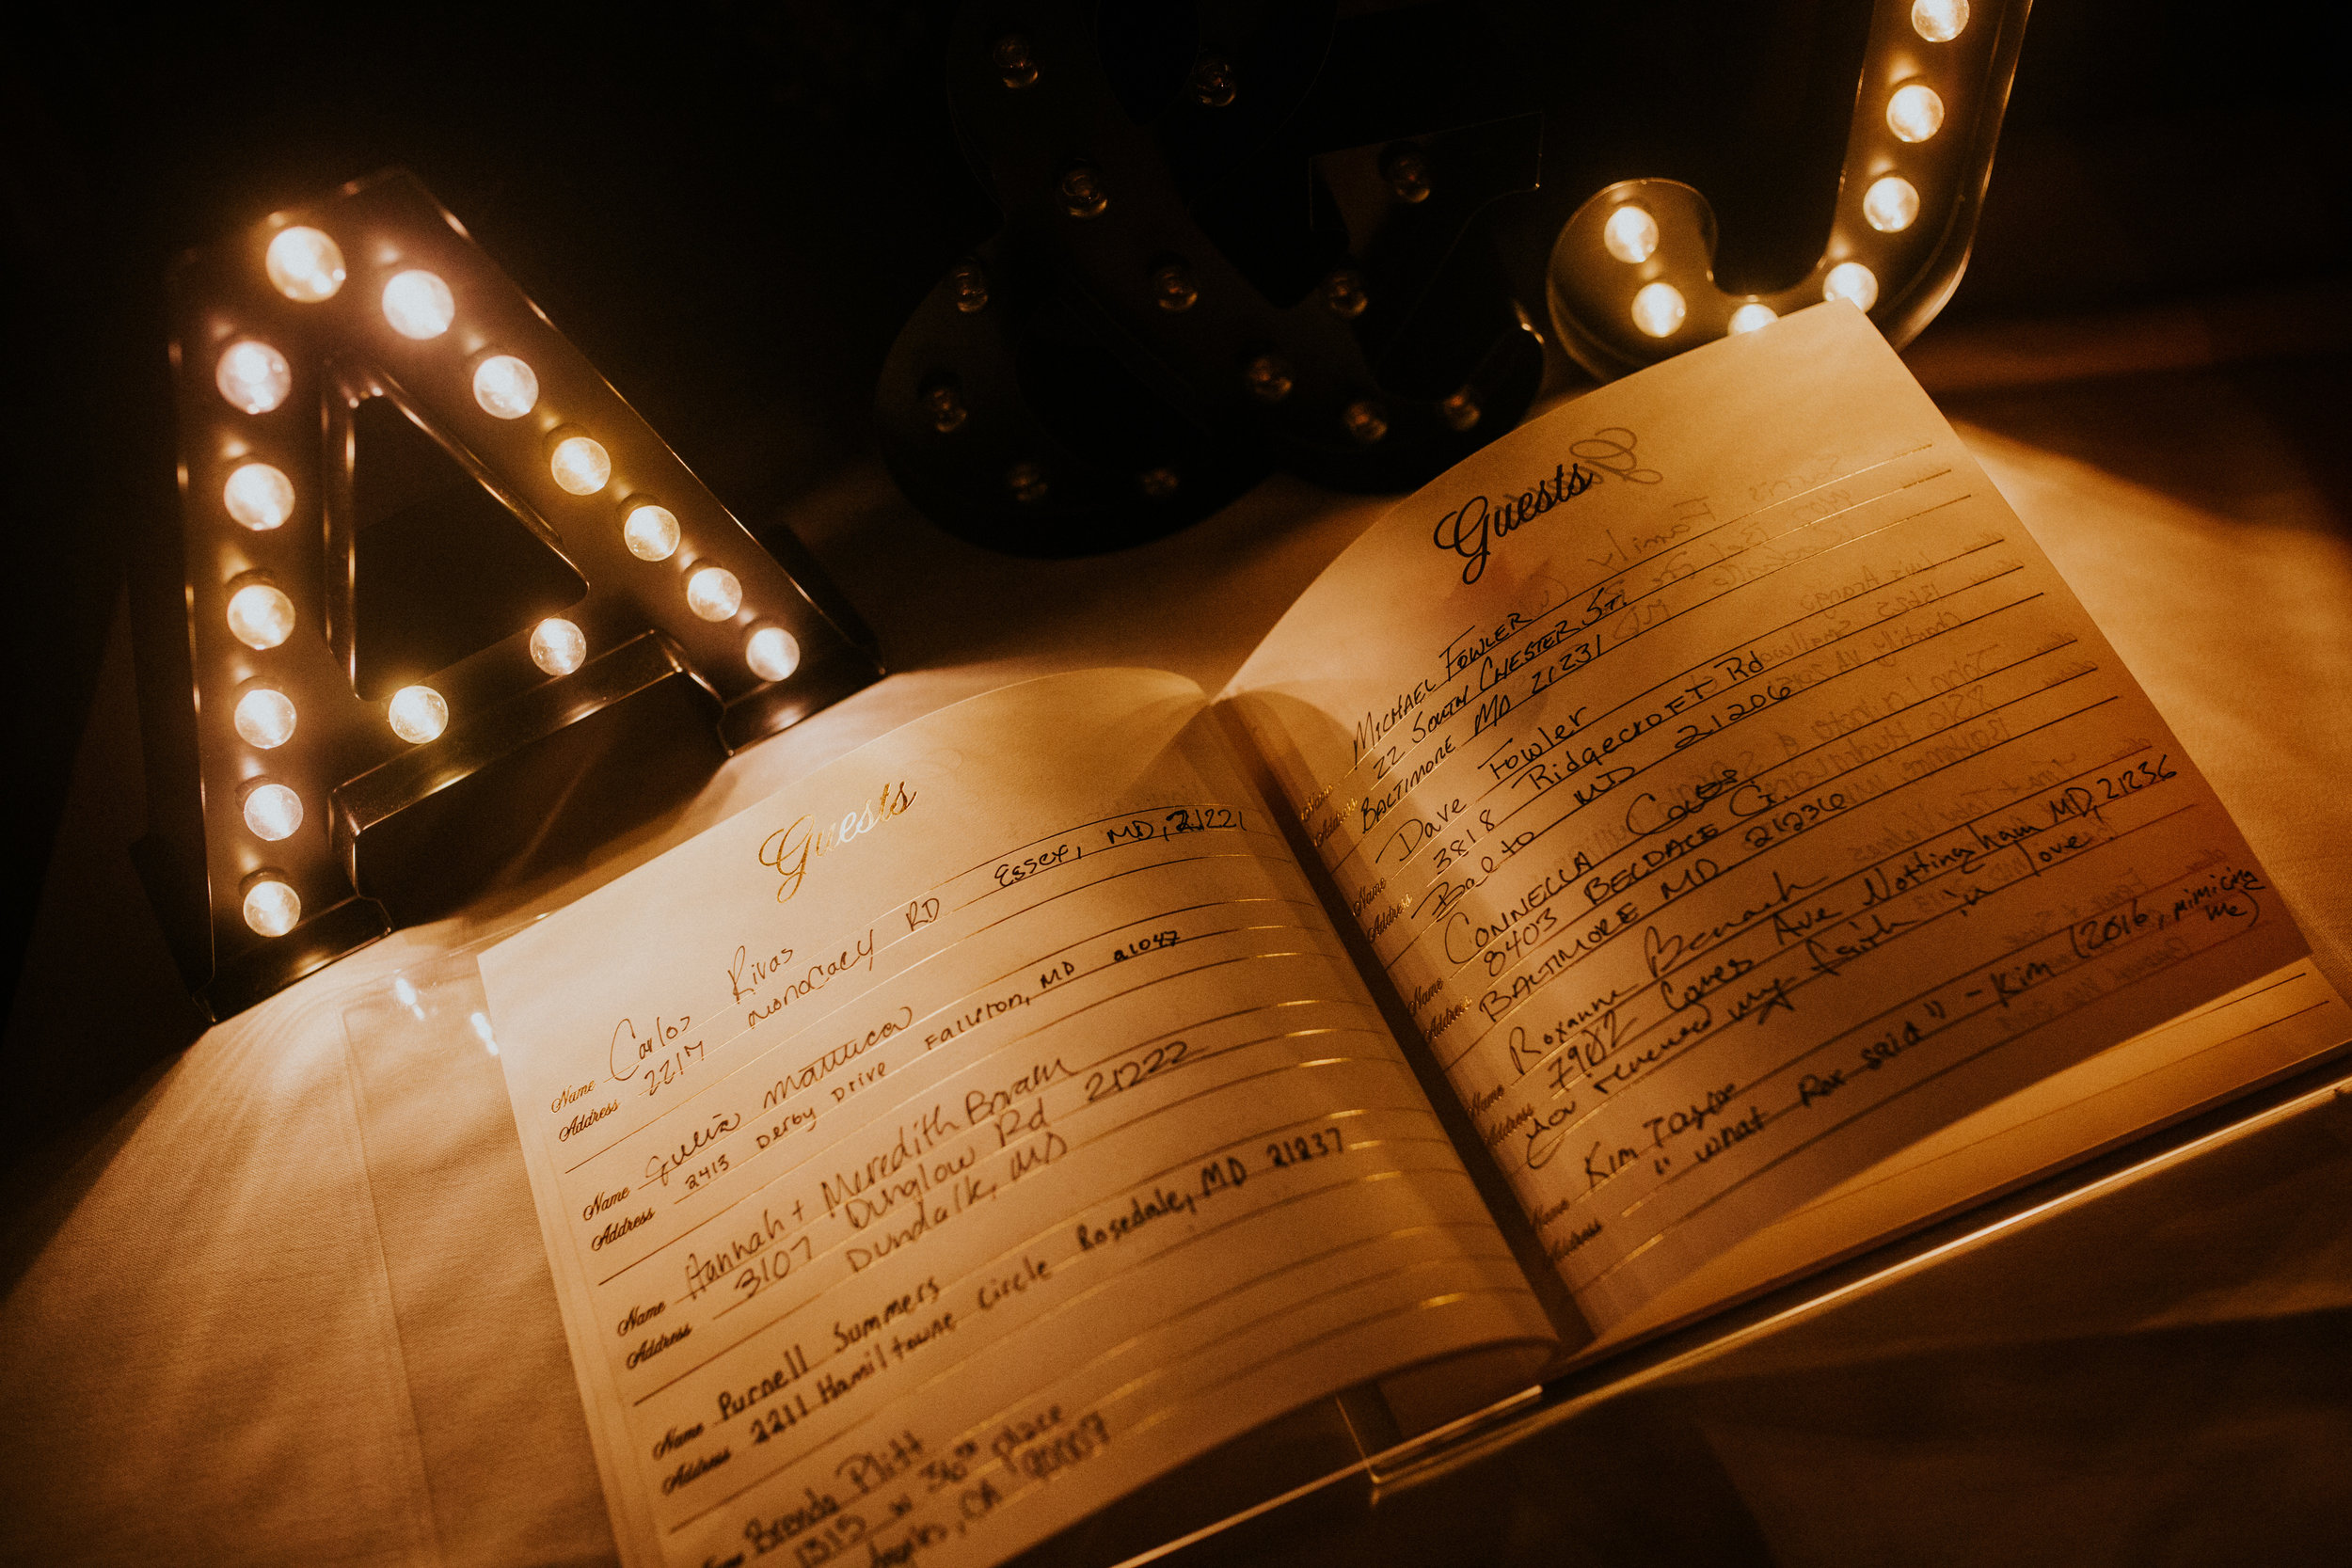 A
&
J
Guests
Name Carlos Rivas
Address 2217 Monocacy RD Essex, MD, 21221
Name Giulia Mattucci
Address 2413 Derby Drive Fallston, MD 21047
Name Hannah + Meredith
Address 3107 Dunglow Rd 21222
Dundalk, MD
Name Purnell Summers
Address 2211 Hamiltowne Circle Rosedale, MD 21237
Name Brenda Plitt
1315 W 36th place
Angeles, CA 90007
Guests
Name MICHAEL FOWLER
Address 22 SOUTH CHESTER ST.
BALTIMORE MD 21231
Name Dave Fowler
Address 3818 Ridgecroft Rd
Balto MD 21206
Name CONNELLA COLES
Address 8403 BELDACE CT.
BALTIMORE MD. 21236
Name Roxanne
Address 7982 Ave Nottingham MD, 21236
you renewed my faith in love
Name Kim Taylor
Address "what Rox said" - Kim (2016, mimicing
me)